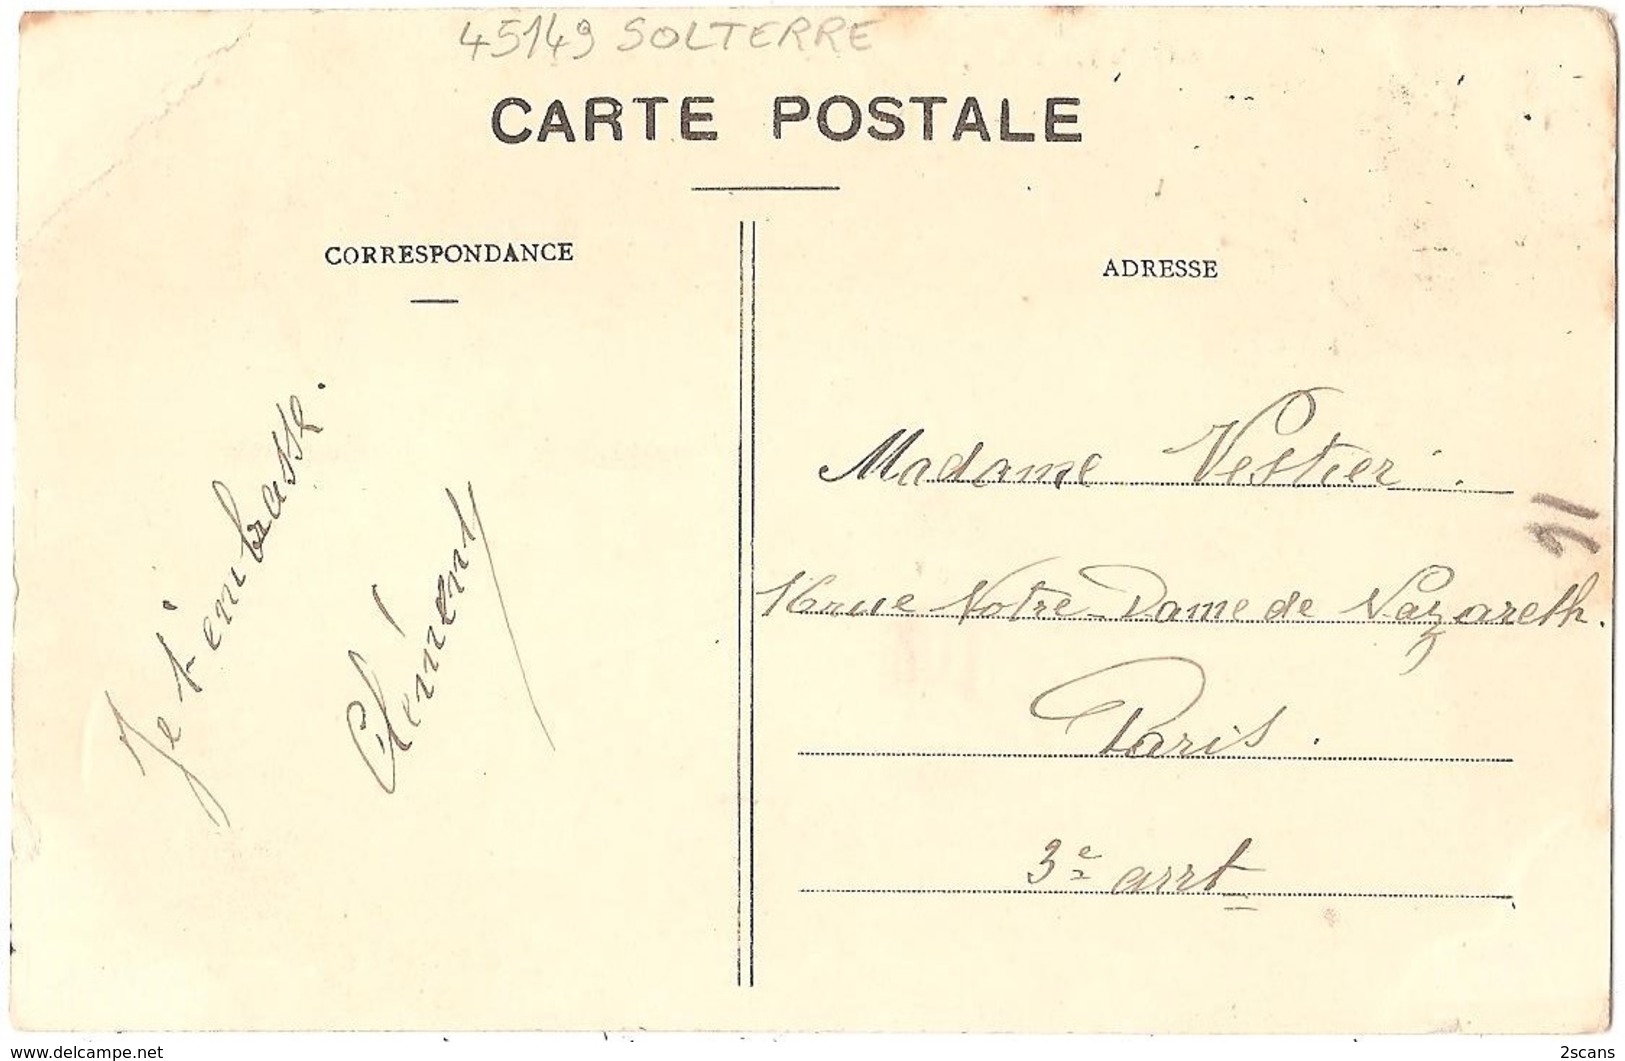 45149 SOLTERRE
CARTE POSTALE
CORRESPONDANCE
Je t'embrasse.
Clément
ADRESSE
Madame Vestier.
16 rue Notre-Dame de Nazareth.
Paris.
3e arrt
91
www.delcampe.net
2scans